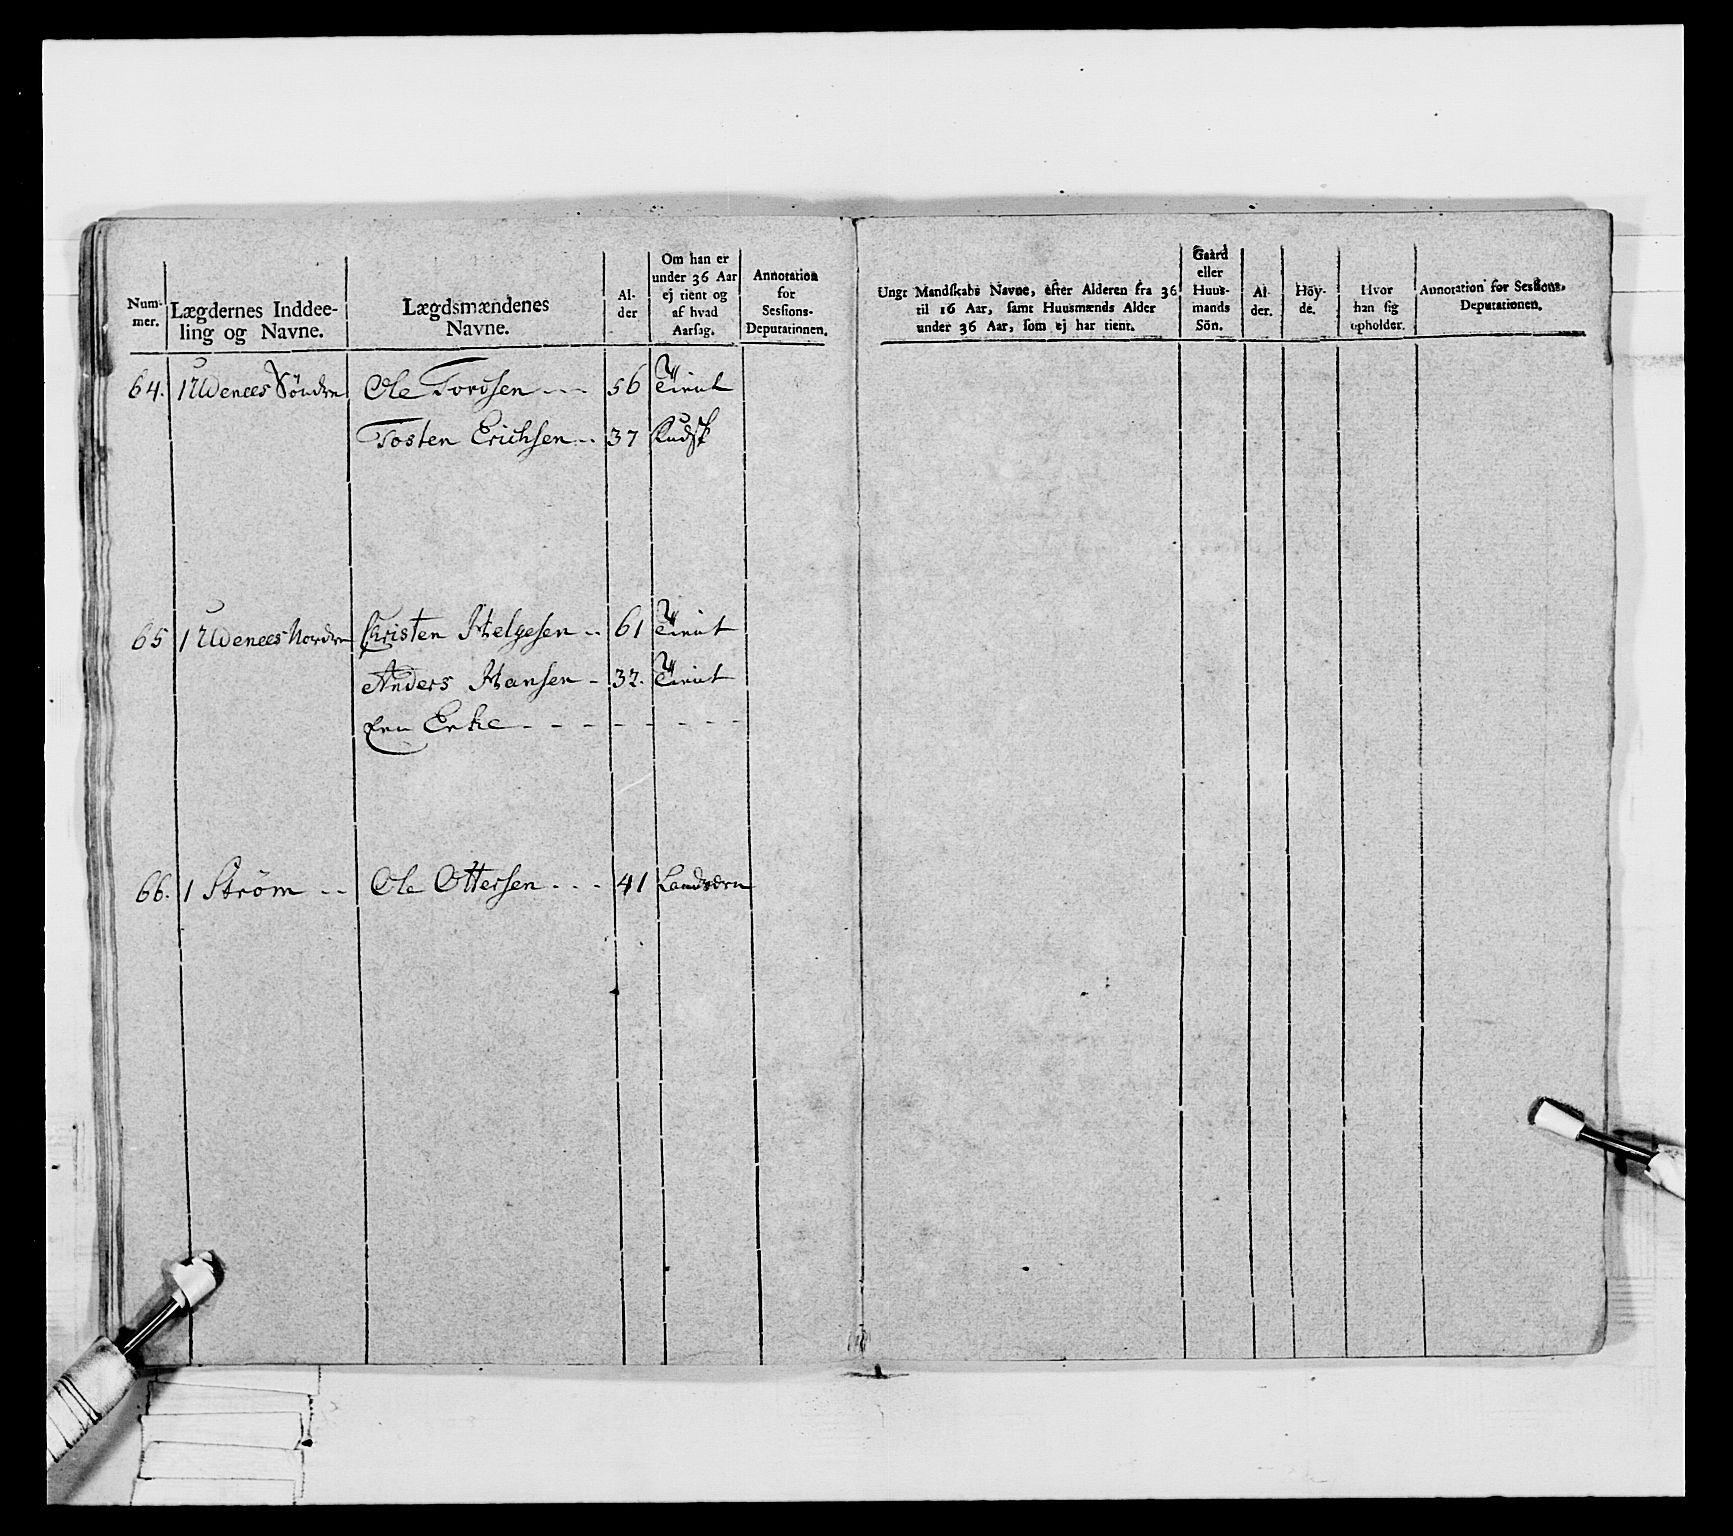 Num-
mer.
Lægdernes Inddee-
ling og Navne.
Lægdsmændenes
Navne.
Al-
der
Om han er
under 36 Aar
ej tient og
af hvad
Aarsag.
Annotation
for
Sessions-
Deputationen.
64. 1 Udenees Søndre Ole Tordsen - - - 56 Tient
Tosten Erichsen - - 37 Kudsk
65 1 Udenees Nordre Christen Helgesen - - 61 Tient
Anders Hansen - 32. Tient
Een Enke - - - - - - - -
66. 1 Strøm - - Ole Ottersen - - - 41 Landværn
Ungt Mandskabs Navne, efter Alderen fra 36
til 16 Aar, samt Huusmænds Alder
under 36 Aar, som ej har tient.
Gaard
eller
Huus-
mands
Sön.
Al-
der.
Höy-
de.
Hvor
han sig
opholder.
Annotation for Sessions-
Deputationen.